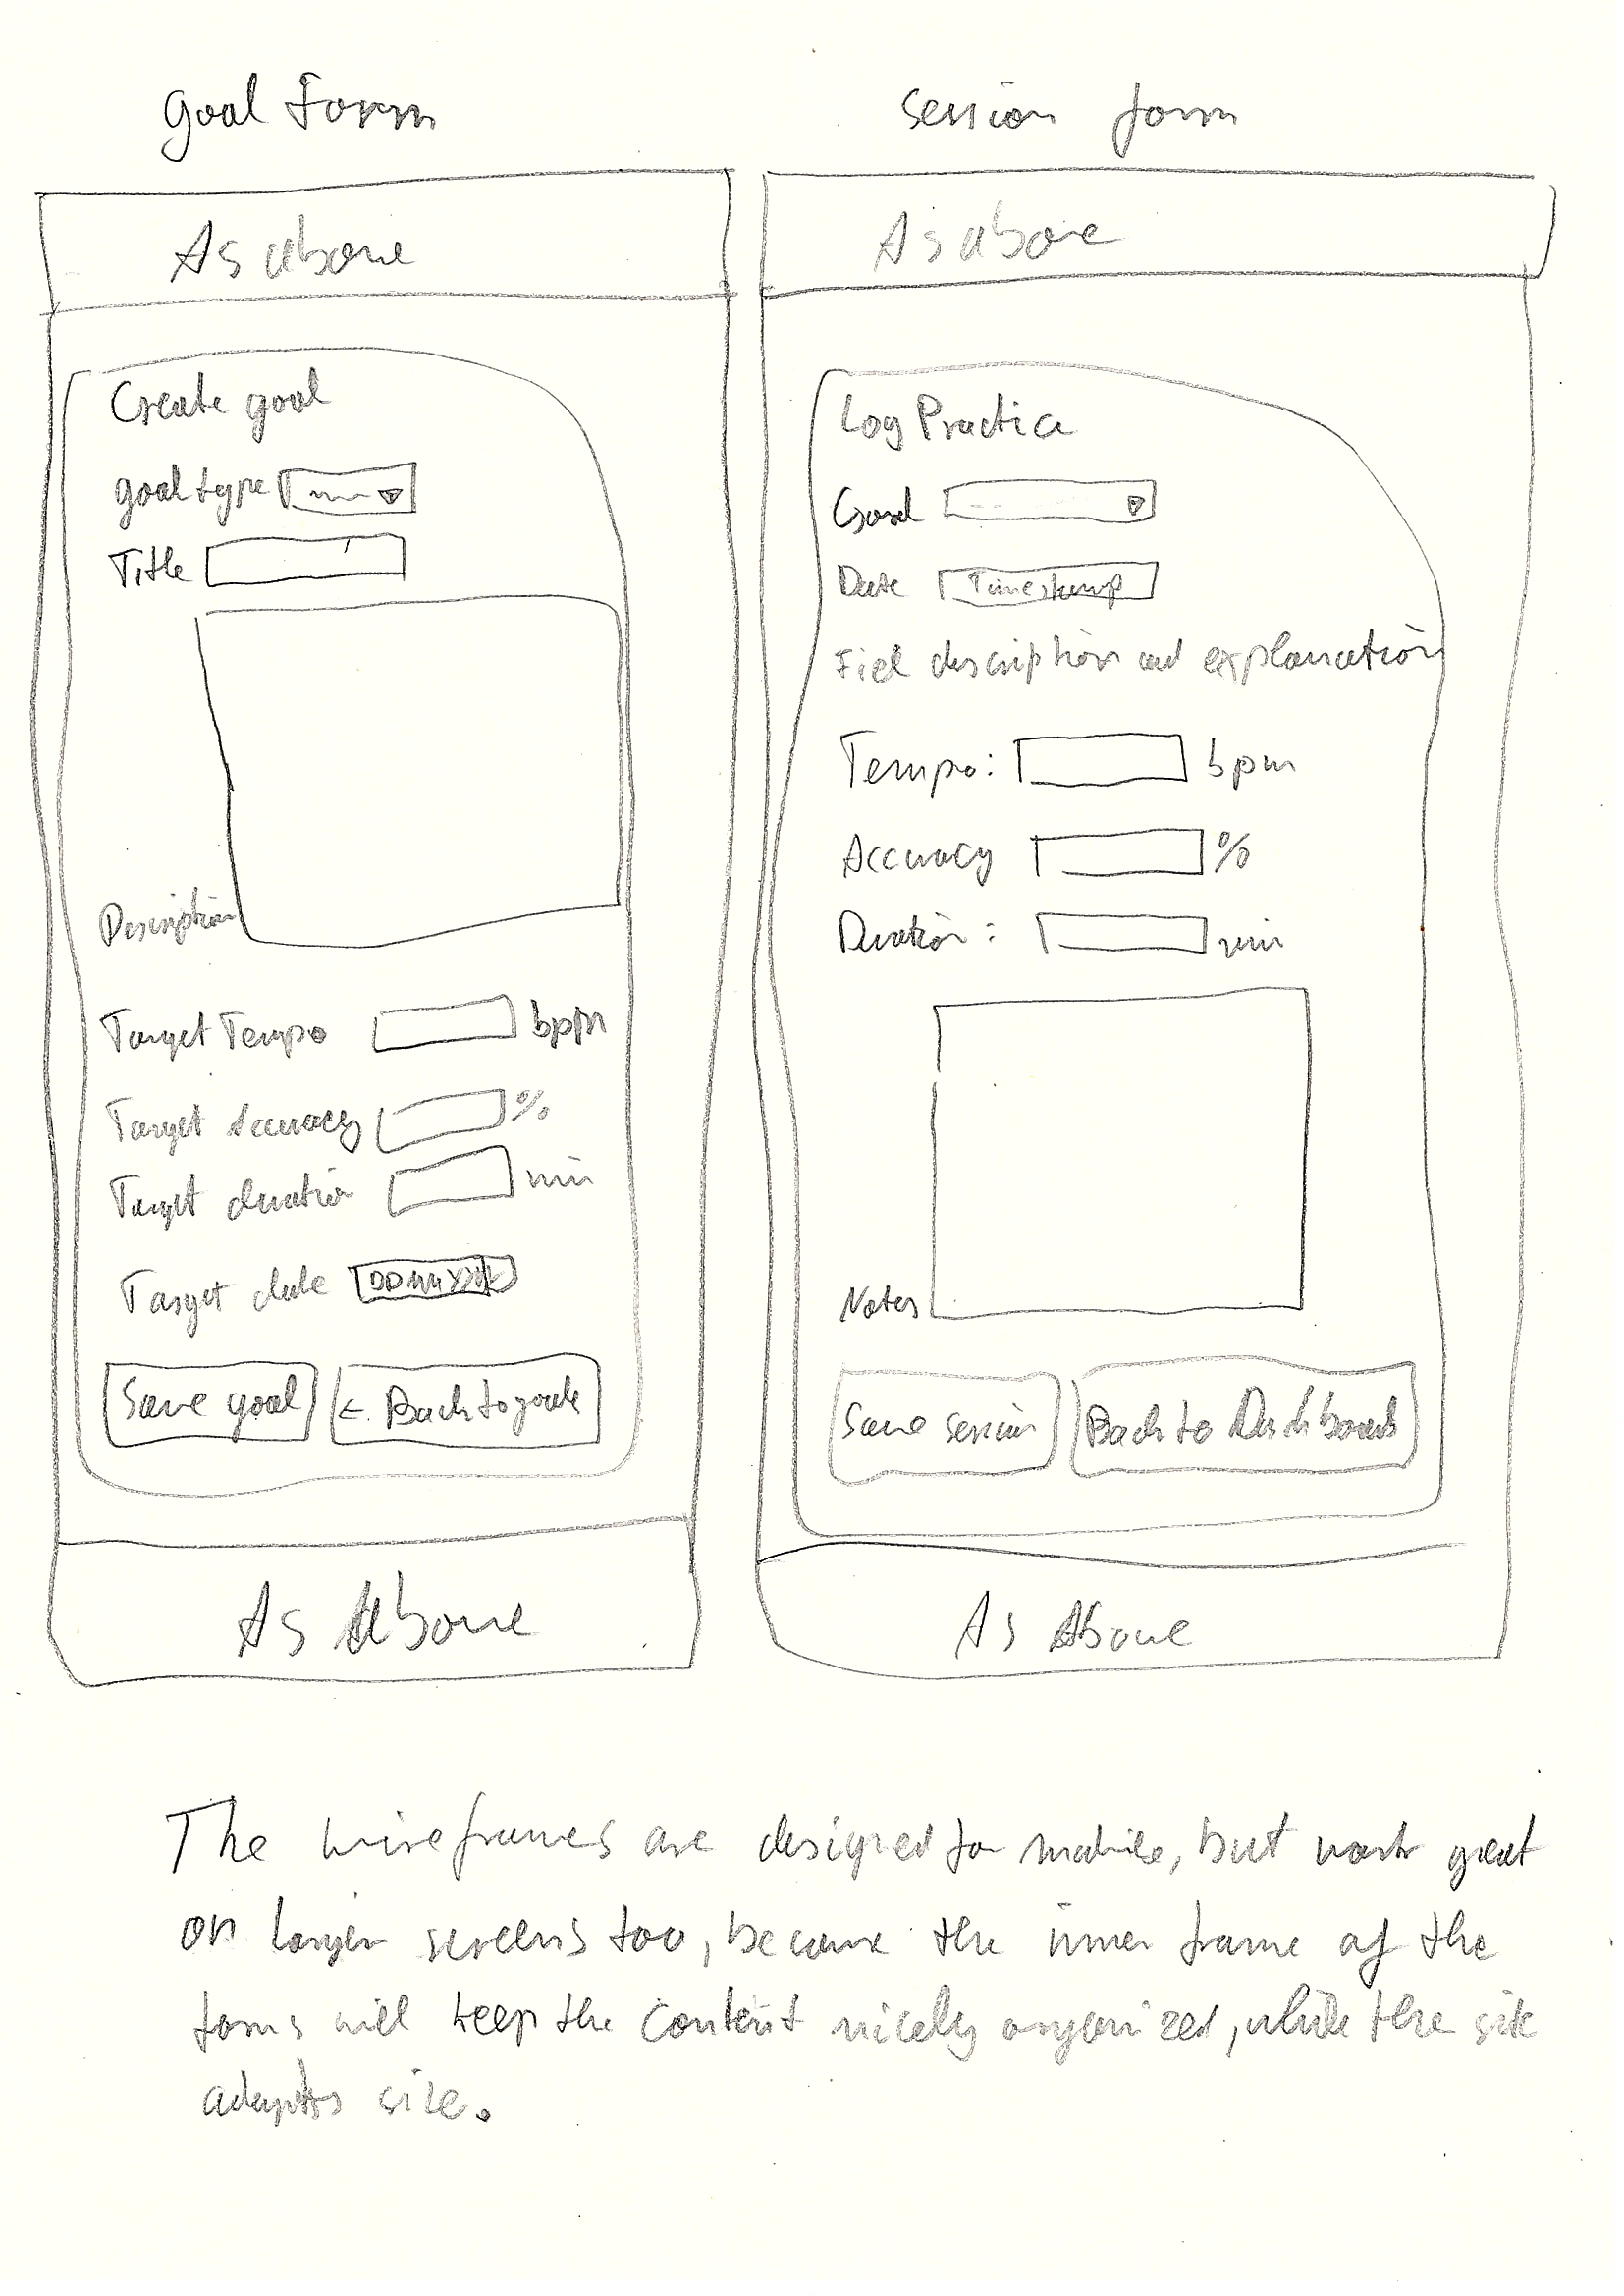 Goal Form
As above
Create goal
goal type
Title
Description
Target Tempo bpm
Target Accuracy %
Target duration min
Target date DDMMYYYY
Save goal ← Back to goals
As Above
Session form
As above
Log Practice
Goal
Date Timestamp
Fiel description and explanation
Tempo: bpm
Accuracy %
Duration: min
Notes
Save session Back to Dashboard
As Above
The wireframes are designed for mobile, but work great
on larger screens too, because the inner frame of the
forms will keep the content nicely organized, while the site
adapts size.